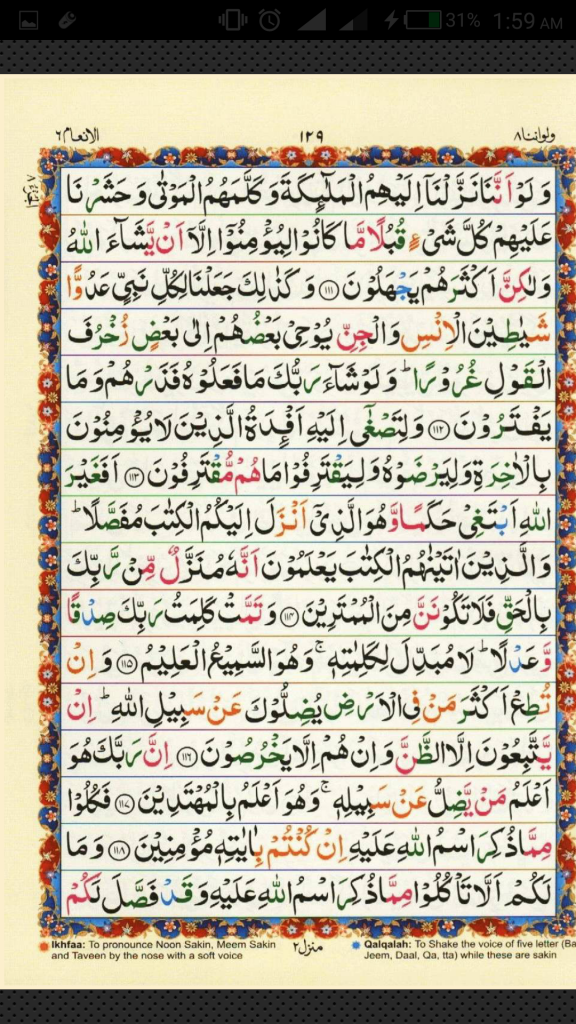 31% 1:59 AM
ولواننا ٨ ١٢٩ الانعام ٦
وَ لَوْ اَنَّنَا نَزَّلْنَاۤ اِلَیْهِمُ الْمَلٰٓئِكَةَ وَ كَلَّمَهُمُ الْمَوْتٰى وَ حَشَرْنَا
عَلَیْهِمْ كُلَّ شَیْءٍ قُبُلًا مَّا كَانُوْا لِیُؤْمِنُوْۤا اِلَّاۤ اَنْ یَّشَآءَ اللّٰهُ
وَلٰكِنَّ اَكْثَرَهُمْ یَجْهَلُوْنَ ۝۱۱۱ وَ كَذٰلِكَ جَعَلْنَا لِكُلِّ نَبِیٍّ عَدُوًّا
شَیٰطِیْنَ الْاِنْسِ وَ الْجِنِّ یُوْحِیْ بَعْضُهُمْ اِلٰى بَعْضٍ زُخْرُفَ
الْقَوْلِ غُرُوْرًا ؕ وَ لَوْ شَآءَ رَبُّكَ مَا فَعَلُوْهُ فَذَرْهُمْ وَ مَا
یَفْتَرُوْنَ ۝۱۱۲ وَ لِتَصْغٰۤى اِلَیْهِ اَفْـِٕدَةُ الَّذِیْنَ لَا یُؤْمِنُوْنَ
بِالْاٰخِرَةِ وَ لِیَرْضَوْهُ وَ لِیَقْتَرِفُوْا مَا هُمْ مُّقْتَرِفُوْنَ ۝۱۱۳ اَفَغَیْرَ
اللّٰهِ اَبْتَغِیْ حَكَمًا وَّ هُوَ الَّذِیْۤ اَنْزَلَ اِلَیْكُمُ الْكِتٰبَ مُفَصَّلًا ؕ
وَ الَّذِیْنَ اٰتَیْنٰهُمُ الْكِتٰبَ یَعْلَمُوْنَ اَنَّهٗ مُنَزَّلٌ مِّنْ رَّبِّكَ
بِالْحَقِّ فَلَا تَكُوْنَنَّ مِنَ الْمُمْتَرِیْنَ ۝۱۱۴ وَ تَمَّتْ كَلِمَتُ رَبِّكَ صِدْقًا
وَّ عَدْلًا ؕ لَا مُبَدِّلَ لِكَلِمٰتِهٖ ۚ وَ هُوَ السَّمِیْعُ الْعَلِیْمُ ۝۱۱۵ وَ اِنْ
تُطِعْ اَكْثَرَ مَنْ فِی الْاَرْضِ یُضِلُّوْكَ عَنْ سَبِیْلِ اللّٰهِ ؕ اِنْ
یَّتَّبِعُوْنَ اِلَّا الظَّنَّ وَ اِنْ هُمْ اِلَّا یَخْرُصُوْنَ ۝۱۱۶ اِنَّ رَبَّكَ هُوَ
اَعْلَمُ مَنْ یَّضِلُّ عَنْ سَبِیْلِهٖ ۚ وَ هُوَ اَعْلَمُ بِالْمُهْتَدِیْنَ ۝۱۱۷ فَكُلُوْا
مِمَّا ذُكِرَ اسْمُ اللّٰهِ عَلَیْهِ اِنْ كُنْتُمْ بِاٰیٰتِهٖ مُؤْمِنِیْنَ ۝۱۱۸ وَ مَا
لَكُمْ اَلَّا تَاْكُلُوْا مِمَّا ذُكِرَ اسْمُ اللّٰهِ عَلَیْهِ وَ قَدْ فَصَّلَ لَكُمْ
Ikhfaa: To pronounce Noon Sakin, Meem Sakin
and Taveen by the nose with a soft voice
منزل ٢
Qalqalah: To Shake the voice of five letter (Ba
Jeem, Daal, Qa, tta) while these are sakin